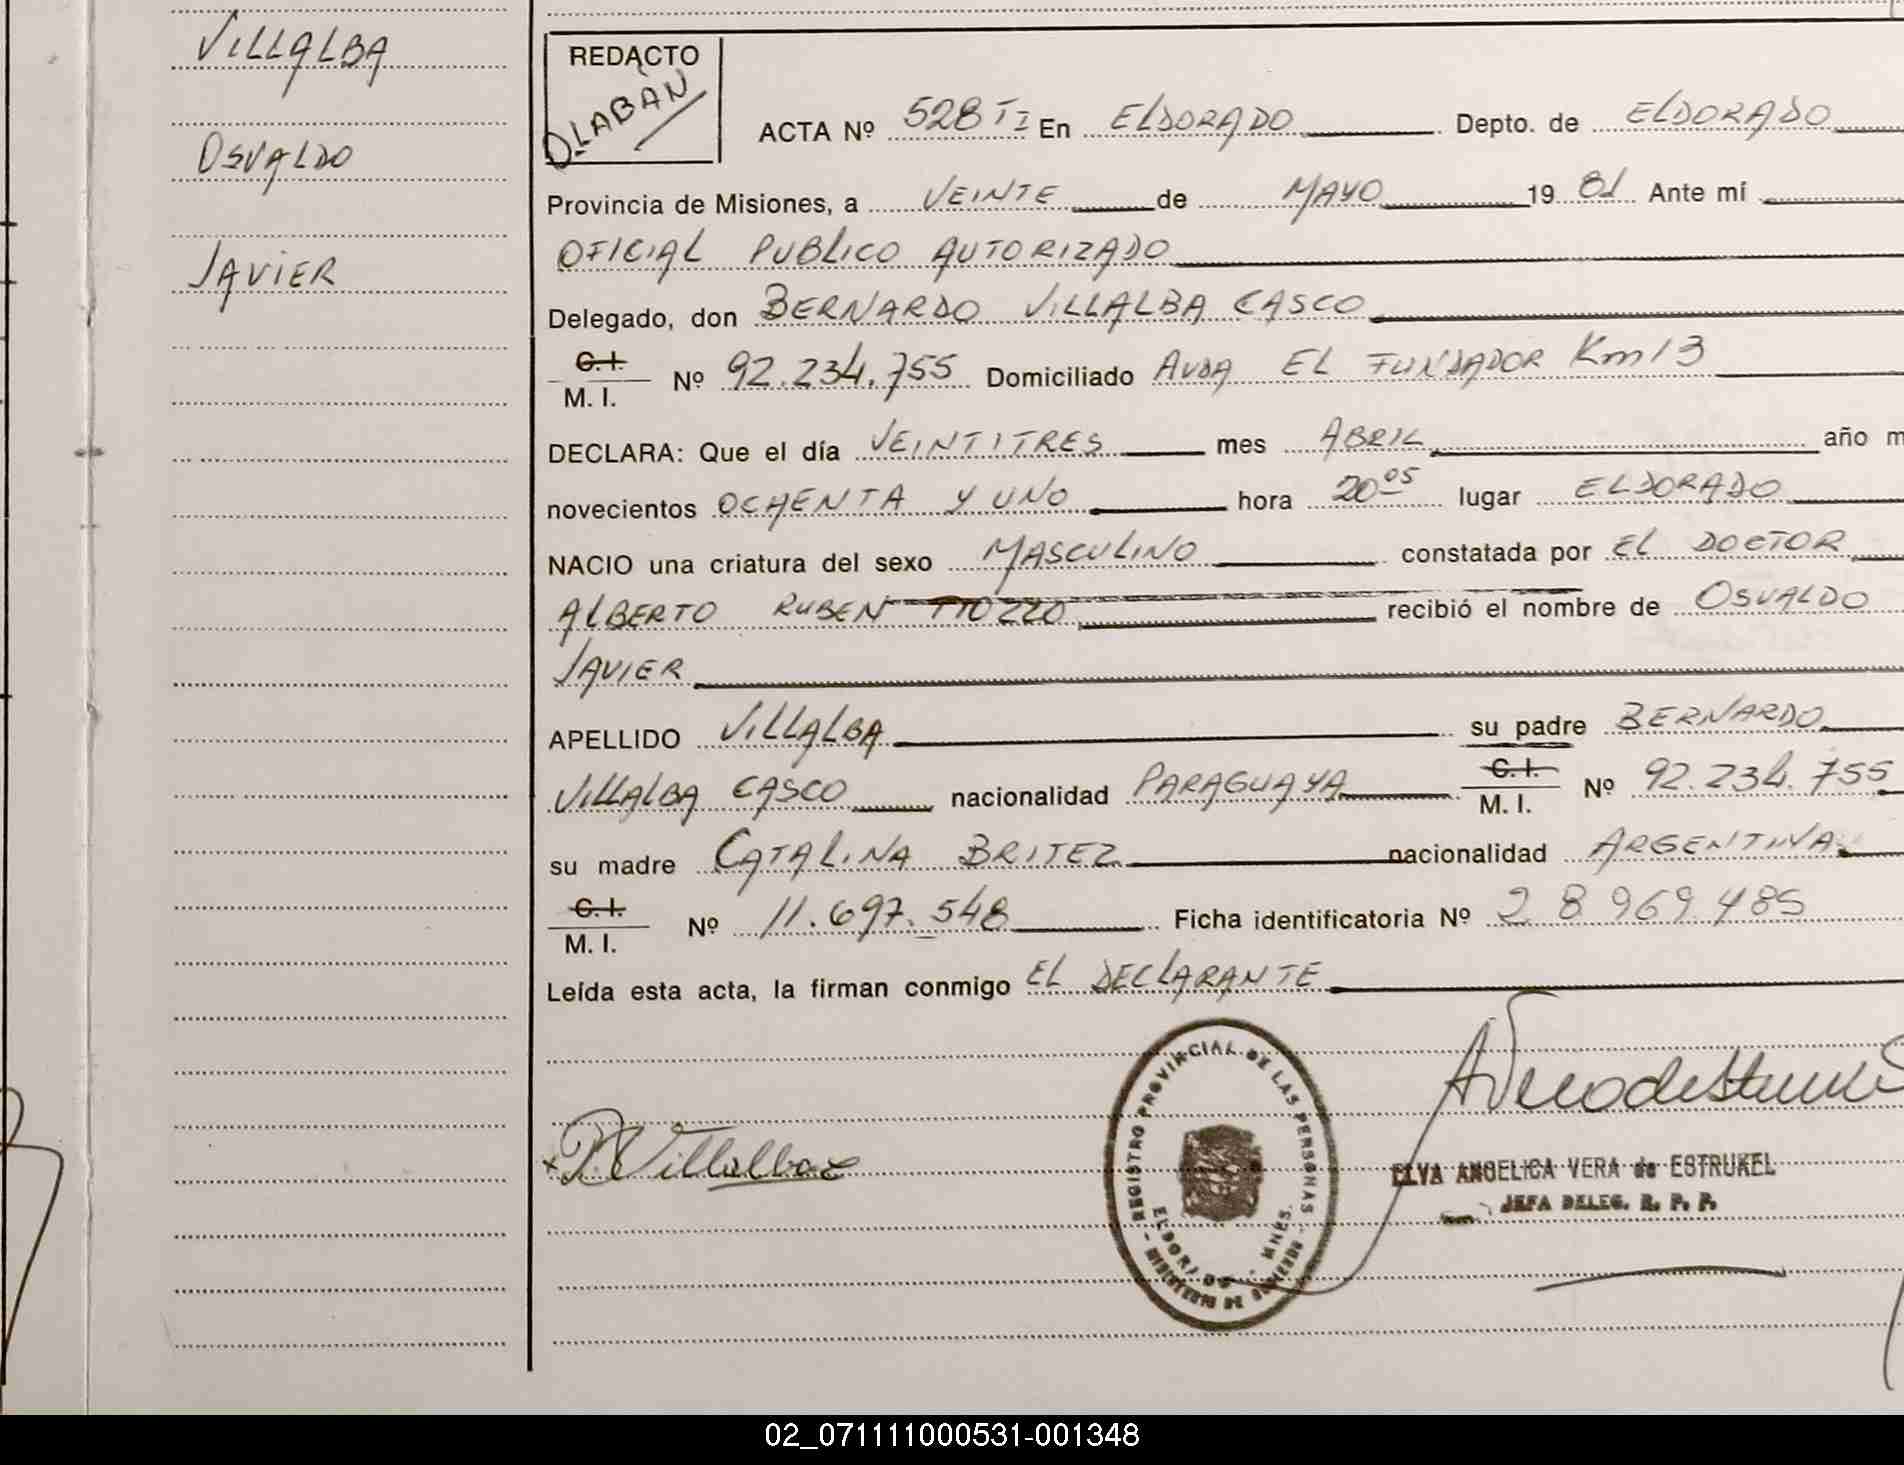 VILLALBA
OSVALDO
JAVIER
REDACTO
OLABAN
ACTA Nº 528 TI En ELDORADO Depto. de ELDORADO
Provincia de Misiones, a VEINTE de MAYO 19 81 Ante mí
OFICIAL PUBLICO AUTORIZADO
Delegado, don BERNARDO VILLALBA CASCO
C. I.
M. I. Nº 92.234.755 Domiciliado AVDA EL FUNDADOR Km 13
DECLARA: Que el día VEINTITRES mes ABRIL año m
novecientos OCHENTA Y UNO hora 20 05 lugar ELDORADO
NACIO una criatura del sexo MASCULINO constatada por EL DOCTOR
ALBERTO RUBEN TTOZZO recibió el nombre de OSVALDO
JAVIER
APELLIDO VILLALBA su padre BERNARDO
VILLALBA CASCO nacionalidad PARAGUAYA C. I. M. I. Nº 92.234.755
su madre CATALINA BRITEZ nacionalidad ARGENTINA
C. I.
M. I. Nº 11.697.548 Ficha identificatoria Nº 28969485
Leída esta acta, la firman conmigo EL DECLARANTE
REGISTRO PROVINCIAL DE LAS PERSONAS
ELDORADO - MNES.
MINISTERIO DE GOBIERNO
B Villalba
ELVA ANGELICA VERA de ESTRUKEL
JEFA DELEG. R. P. P.
02_071111000531-001348